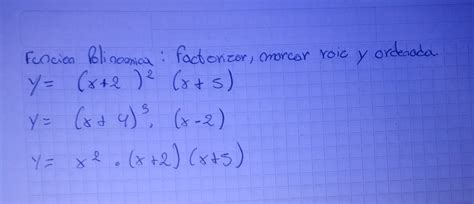 Funcion Polinomica : factorizar, marcar raiz y ordenada
y = (x+2)² (x+5)
y = (x+4)³ . (x-2)
y = x² . (x+2) (x+5)